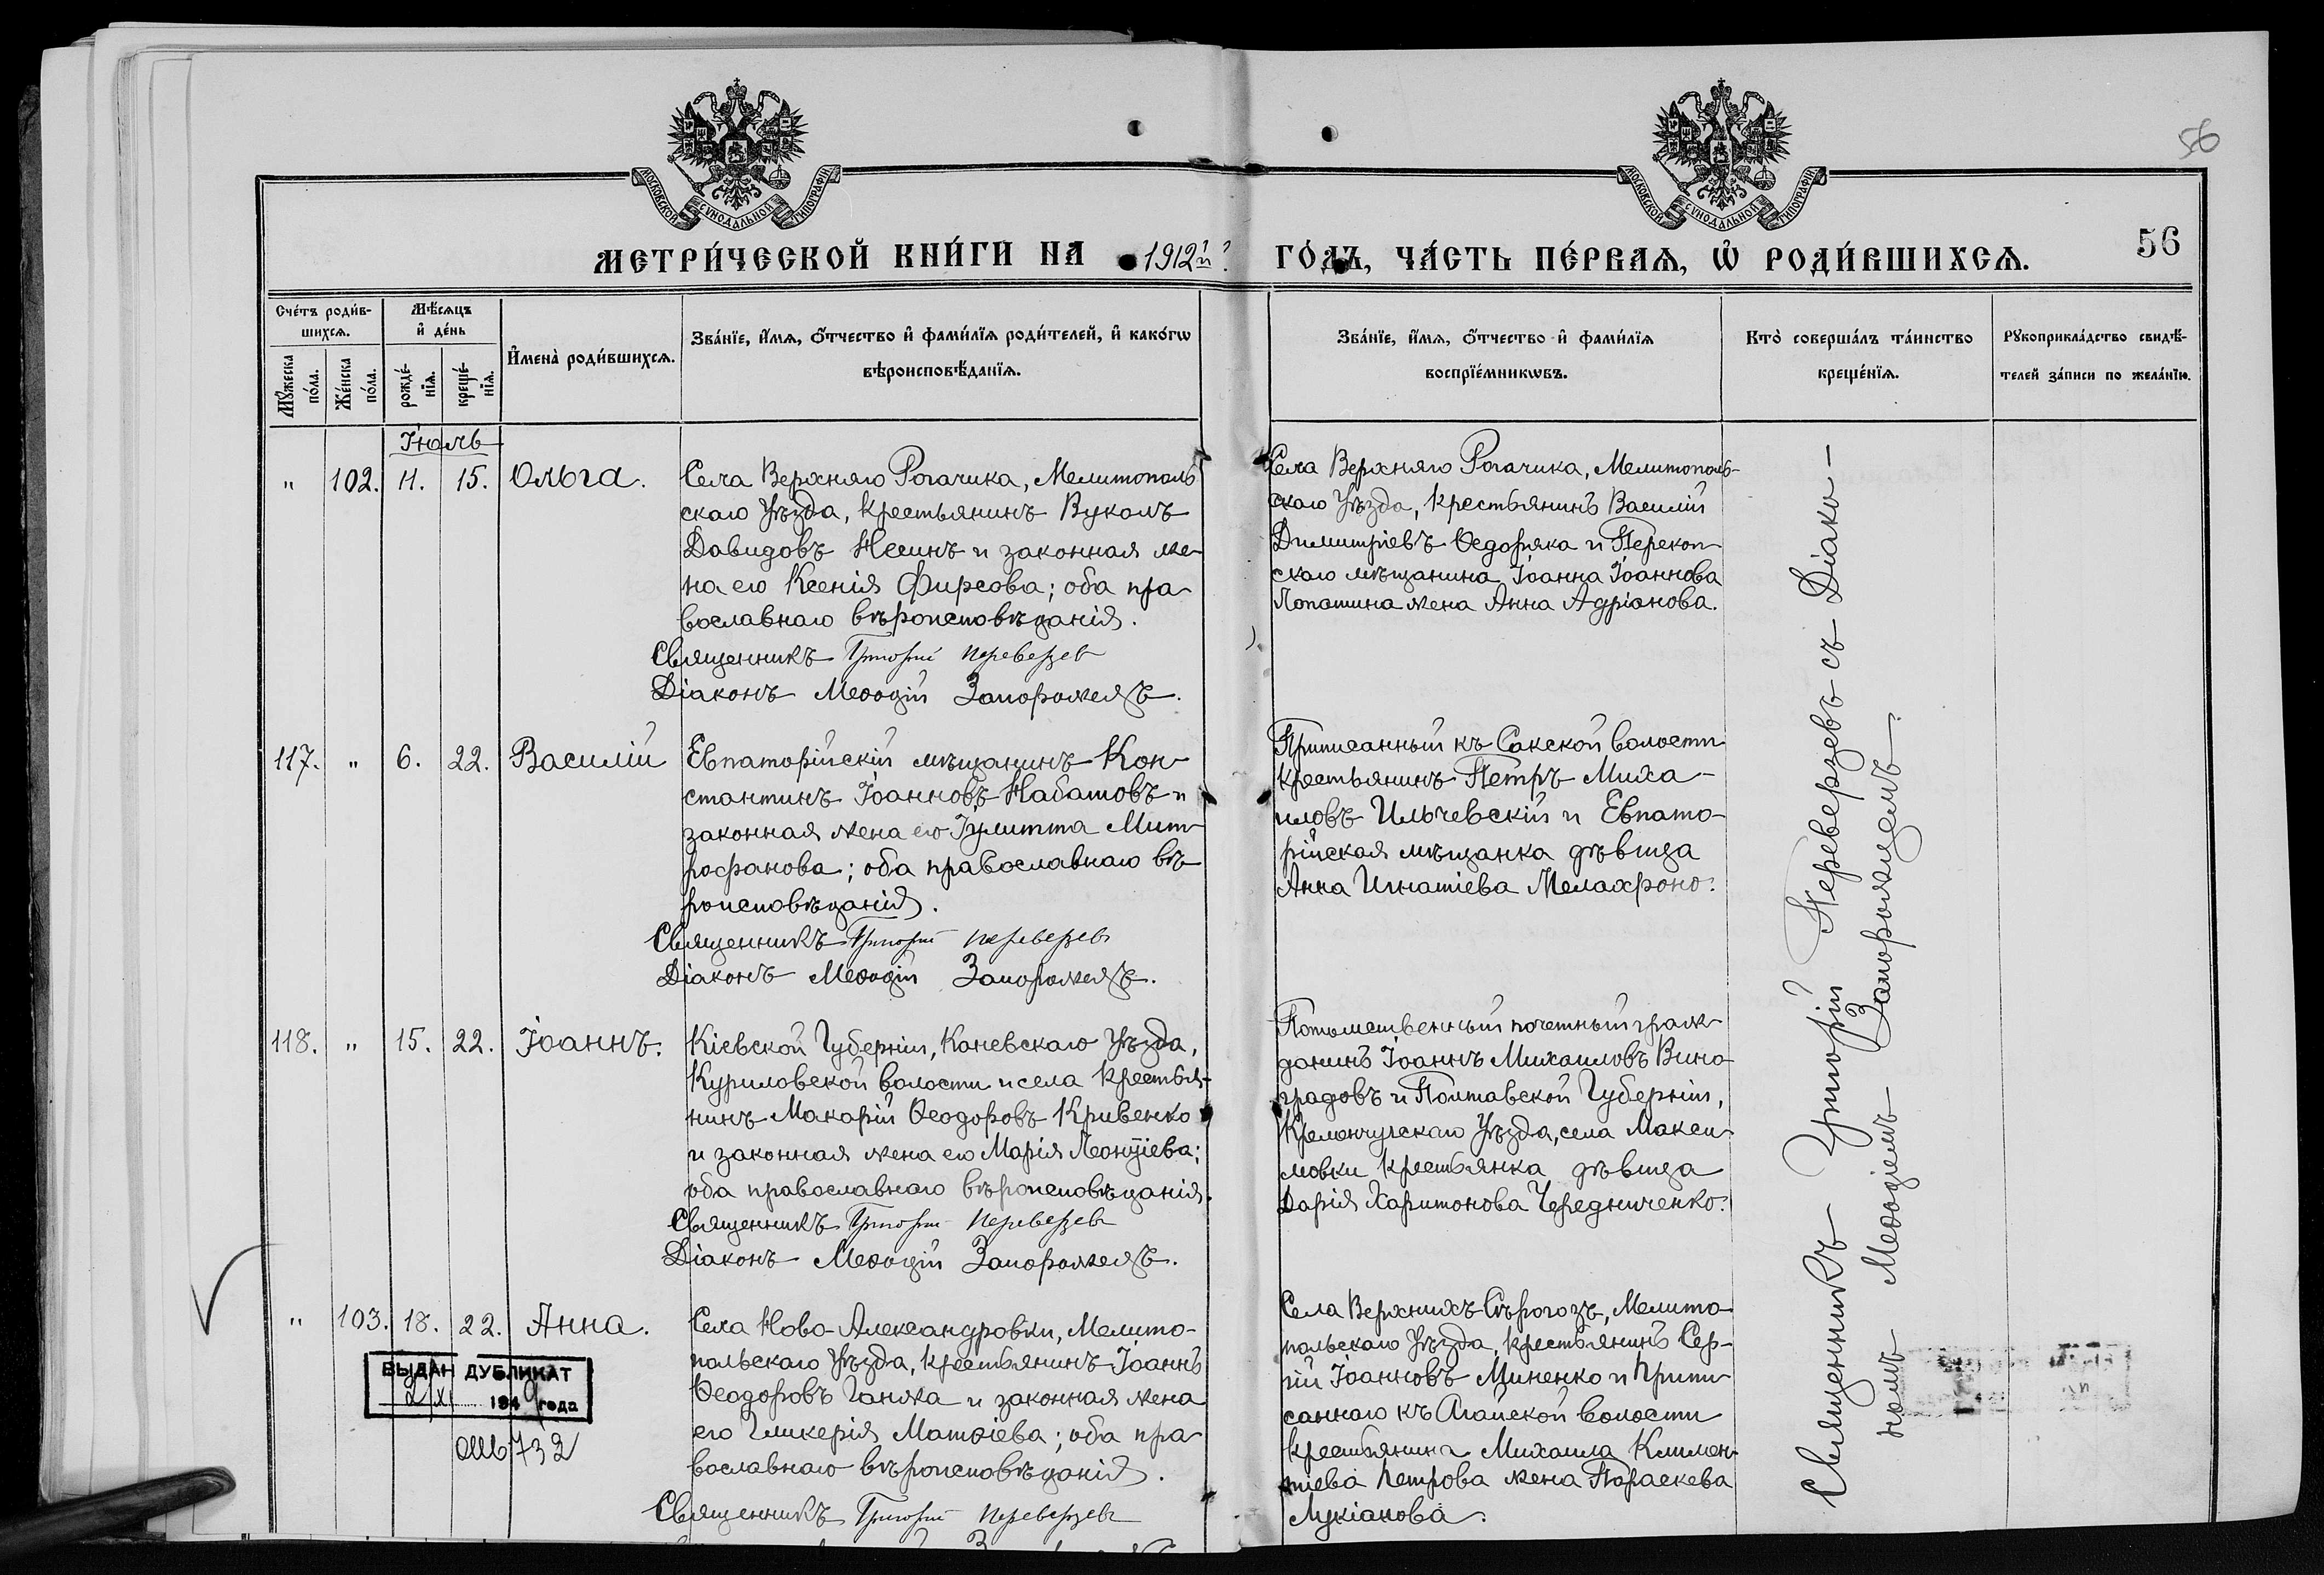 56
МОСКОВСКОЙ СУНОДАЛЬНОЙ ТИПОГРАФІИ
МОСКОВСКОЙ СУНОДАЛЬНОЙ ТИПОГРАФІИ
МЕТРИ́ЧЕСКОЙ КНИ́ГИ НА 1912й ГО́ДЪ, ЧА́СТЬ ПЕ́РВАѦ, Ѡ҆ РОДИ́ВШИХСѦ.
56
Сче́тъ роди́в-
шихсѧ.
Мѣ́сѧцъ
и҆ де́нь
Мꙋ́жеска
по́ла.
Же́нска
по́ла.
рожде́-
нїѧ.
креще́-
нїѧ.
И҆мена̀ роди́вшихсѧ.
Зва́нїе, и҆́мѧ, ѻ҆́тчество и҆ фами́лїѧ роди́телей, и҆ како́гѡ
вѣроисповѣ́данїѧ.
Зва́нїе, и҆́мѧ, ѻ҆́тчество и҆ фами́лїѧ
воспрїе́мникѡвъ.
Кто̀ соверша́лъ та́инство
креще́нїѧ.
Рꙋкоприкла́дство свидѣ́-
телей за́писи по жела́нїю.
Іюль
" 102. 11. 15. Ольга.
Села Верхняго Рогачика, Мелитополь
скаго Уѣзда, крестьянинъ Вуколъ
Давидовъ Несинъ и законная же-
на его Ксенія Фирсова; оба пра-
вославнаго вѣроисповѣданія.
Священникъ Григорій Переверзев
Діаконъ Меѳодій Запорожецъ.
Села Верхняго Рогачика, Мелитополь-
скаго Уѣзда, крестьянинъ Василій
Димитріевъ Ѳедоряка и Перекоп-
скаго мѣщанина Іоанна Іоаннова
Лопатина жена Анна Адріанова.
117. " 6. 22. Василій
Евпаторійскій мѣщанинъ Кон-
стантинъ Іоанновъ Набатовъ и
законная жена его Іулитта Мит-
рофанова; оба православнаго вѣ-
роисповѣданія.
Священникъ Григорій Переверзев
Діаконъ Меѳодій Запорожецъ.
Приписанный къ Сакской волости
крестьянинъ Петръ Миха-
иловъ Ильчевскій и Евпато-
рійская мѣщанка дѣвица
Анна Игнатіева Мелахроно.
118. " 15. 22. Іоаннъ.
Кіевской Губерніи, Каневскаго Уѣзда,
Куриловской волости и села крестья-
нинъ Макарій Ѳеодоровъ Кривенко
и законная жена его Марія Леонтіева;
оба православнаго вѣроисповѣданія.
Священникъ Григорій Переверзев
Діаконъ Меѳодій Запорожецъ.
Потомственный почетный граж-
данинъ Іоаннъ Михаиловъ Вино-
градовъ и Полтавской Губерніи,
Кременчугскаго Уѣзда, села Макси-
мовки крестьянка дѣвица
Дарія Харитонова Чередниченко.
" 103. 18. 22. Анна.
Села Ново-Александровки, Мелито-
польскаго Уѣзда, крестьянинъ Іоаннъ
Ѳеодоровъ Ганжа и законная жена
его Гликерія Матѳіева; оба пра-
вославнаго вѣроисповѣданія.
Священникъ Григорій Переверзев
Села Верхнихъ Сѣрогозъ, Мелито-
польскаго Уѣзда, крестьянинъ Сер-
гій Іоанновъ Миненко и припи-
саннаго къ Агайской волости
крестьянина Михаила Климен-
тіева Петрова жена Параскева
Лукіанова.
ВЫДАН ДУБЛИКАТ
2/XI 1949 года
732
Священникъ Григорій Переверзевъ съ Діако-
номъ Меѳодіемъ Запорожцемъ.